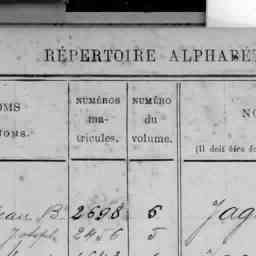 RÉPERTOIRE ALPHABÉ
OMS
NOMS.
NUMÉROS
ma-
tricules.
NUMÉRO
du
volume.
NO
(Il doit être
ean B. 2698 6
Joseph 2456 5
Jag